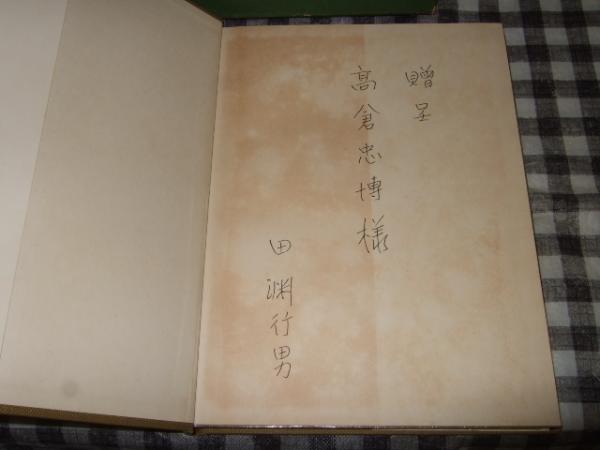 贈呈
髙倉忠博様
田渊行男